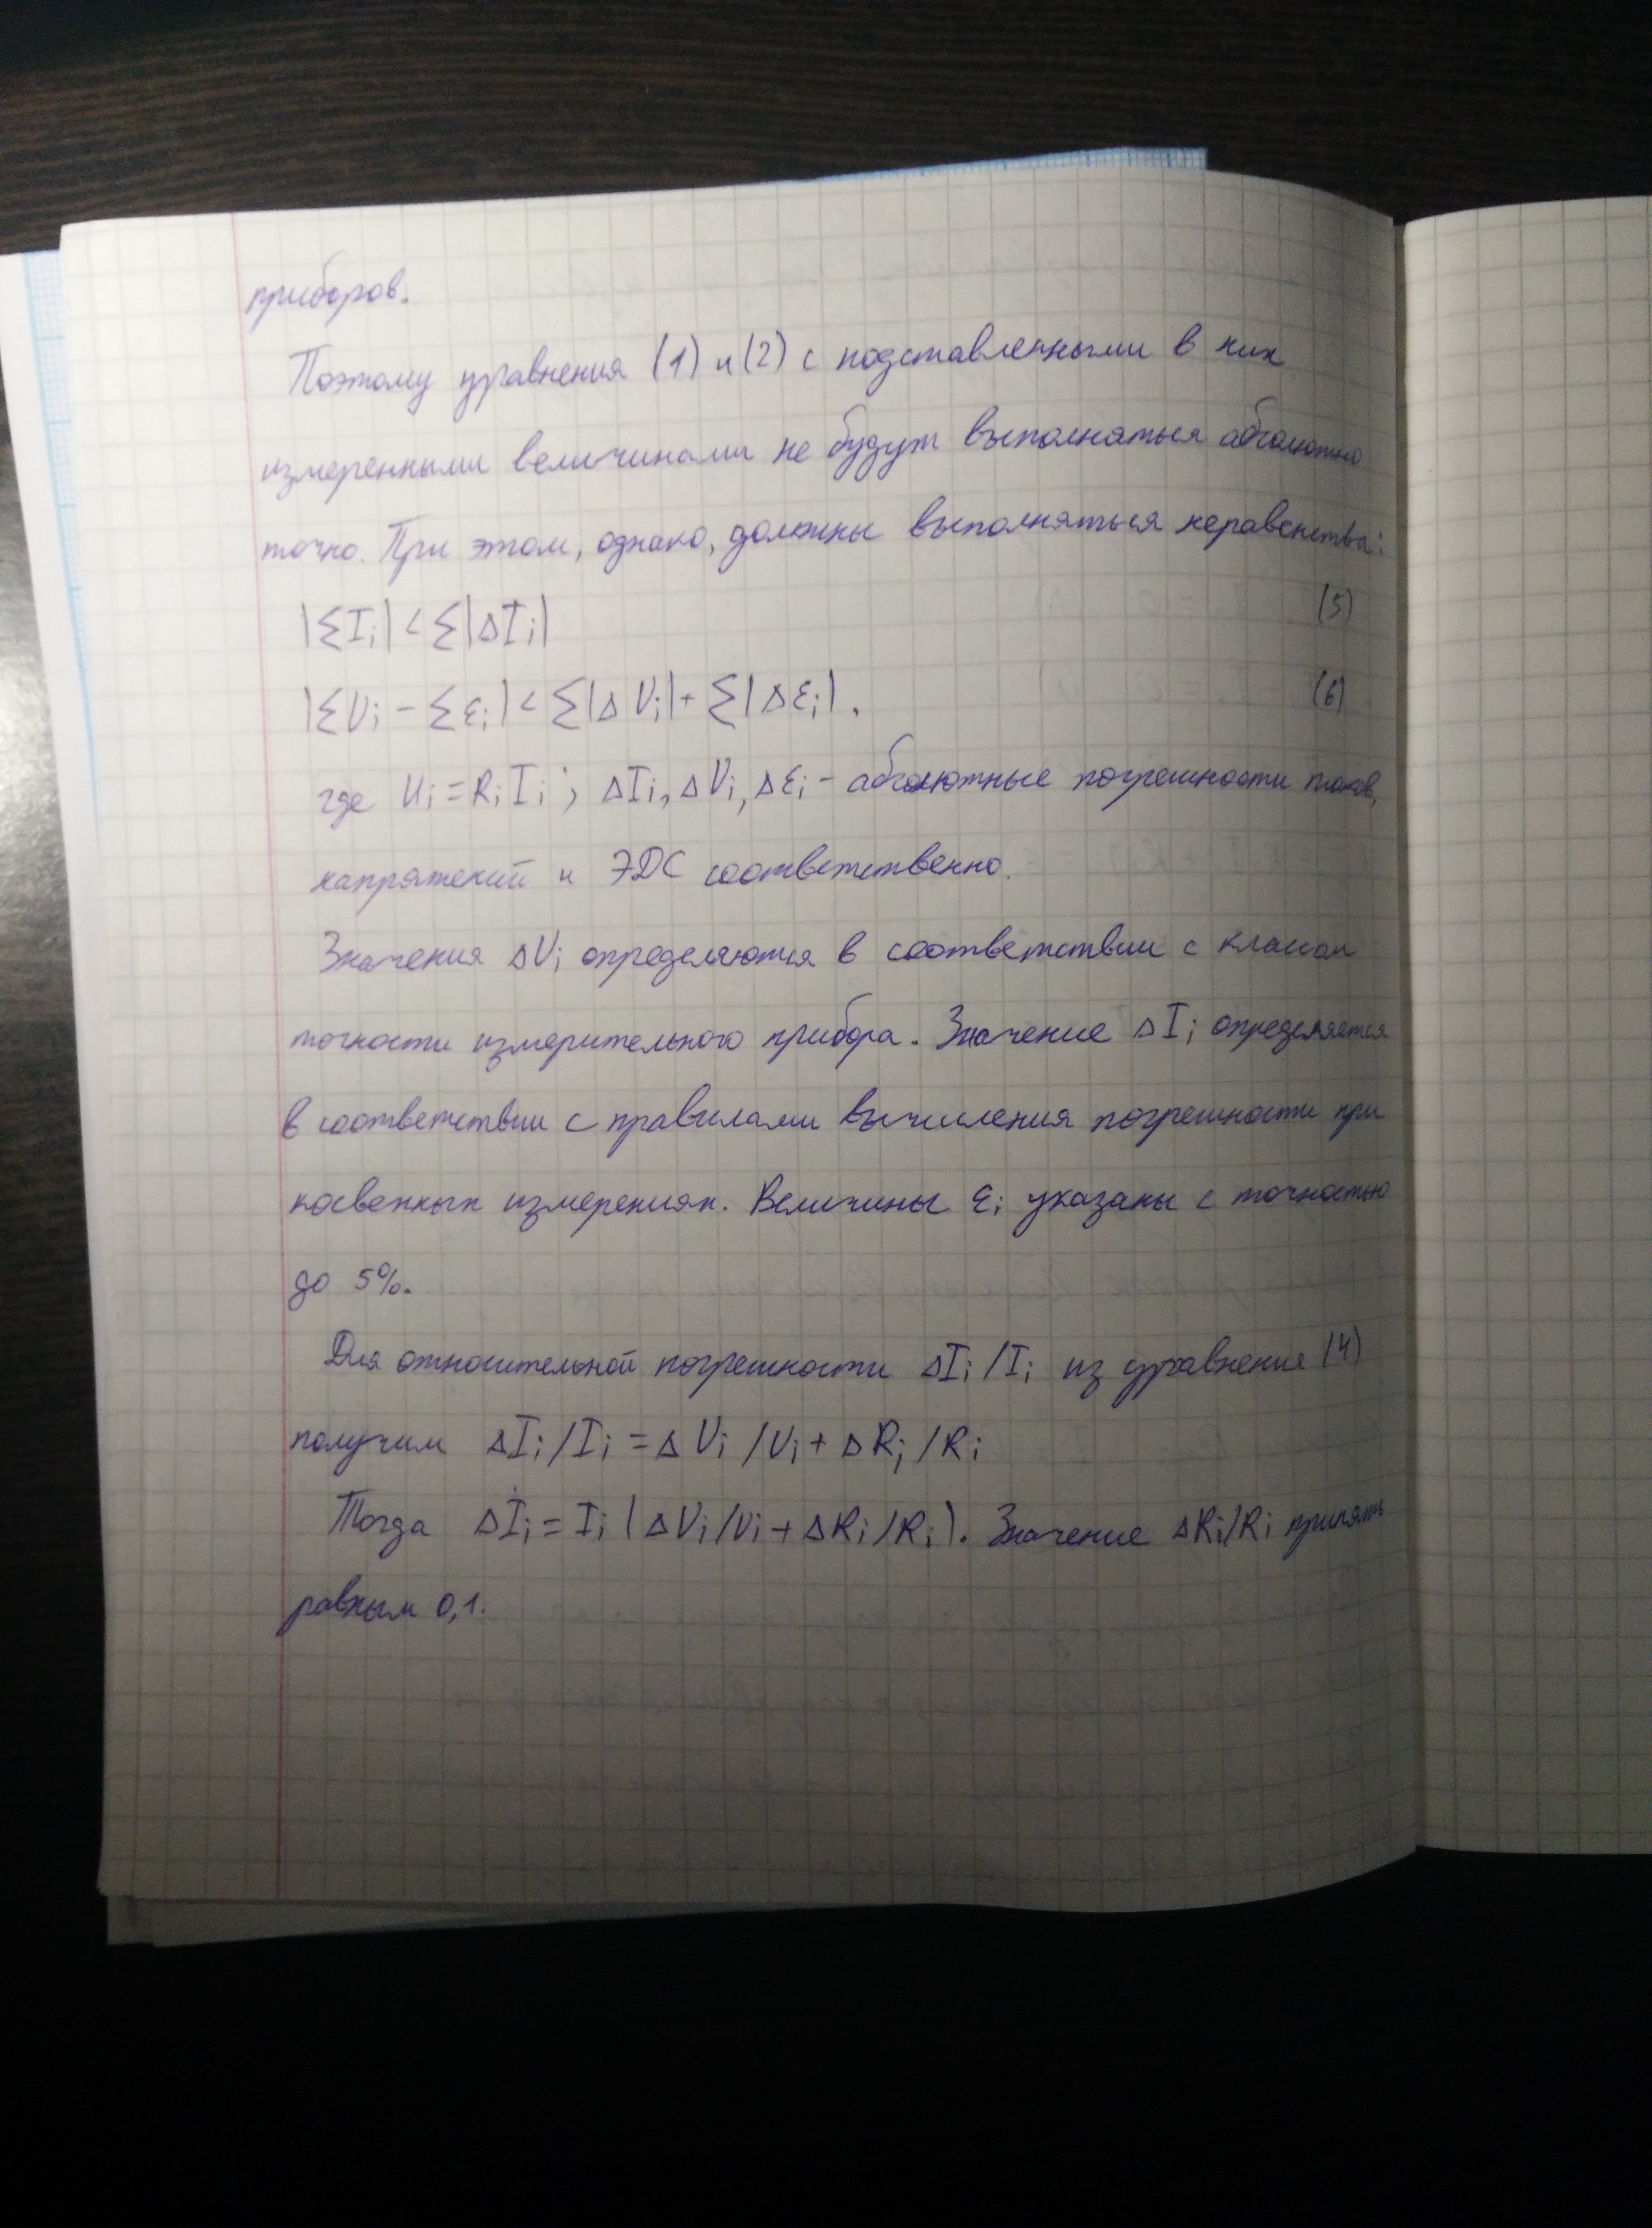 приборов.
Поэтому уравнения (1) и (2) с подставленными в них
измеренными величинами не будут выполняться абсолютно
точно. При этом, однако, должны выполняться неравенства:
|ΣIi| < Σ|ΔIi| (5)
|ΣVi - Σεi| < Σ|ΔVi| + Σ|Δεi|. (6)
где Ui = RiIi; ΔIi, ΔVi, Δεi - абсолютные погрешности токов,
напряжений и ЭДС соответственно.
Значения ΔVi определяются в соответствии с классом
точности измерительного прибора. Значение ΔIi определяется
в соответствии с правилами вычисления погрешности при
косвенных измерениях. Величины εi указаны с точностью
до 5%.
Для относительной погрешности ΔIi/Ii из уравнение (4)
получим ΔIi/Ii = ΔVi/Vi + ΔRi/Ri
Тогда ΔIi = Ii (ΔVi/Vi + ΔRi/Ri). Значение ΔRi/Ri принять
равным 0,1.